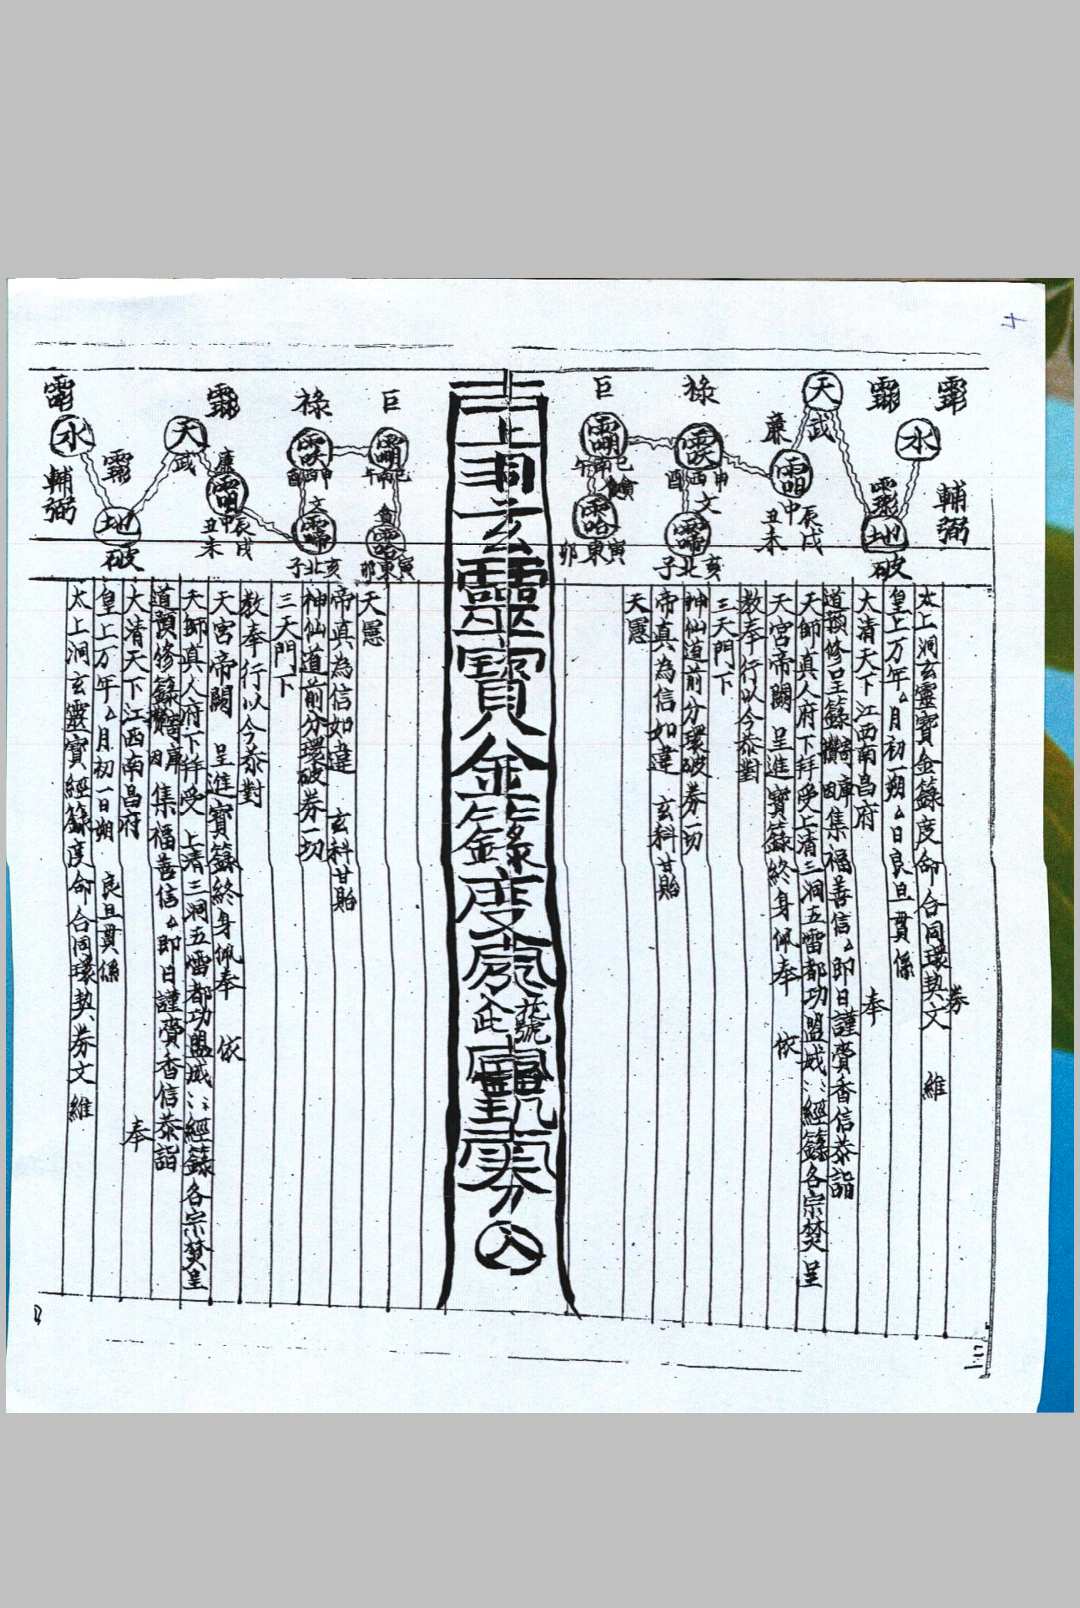 太上洞玄靈寶金籙度命合同環契券文 維
皇上万年厶月初一朔厶日良旦貫係
太清天下江西南昌府 奉
道預修呈籙 集福善信厶即日謹賫香信恭詣
天師真人府下拜受上清三洞五雷都功盟威經籙各宗焚呈
天宮帝闕 呈進寶籙終身佩奉 依
教奉行以今恭對
三天門下
神仙道前分環破券一切
帝真為信如違 玄科甘貽
天愿
巨 祿 廉 天 武 水 輔弼
巳 午 申 酉 西 文 中 辰戌 丑未 地 破
寅 卯 東 亥 子 北
上洞玄靈寶金籙度
號
分
巨 祿 天 武 廉 水 輔弼
午 申 酉 西 文 中 辰戌 丑未 地 破
寅 卯 東 亥 子 北
天愿
帝真為信如違 玄科甘貽
神仙道前分環破券一切
三天門下
教奉行以今恭對
天宮帝闕 呈進寶籙終身佩奉 依
天師真人府下拜受上清三洞五雷都功盟威經籙各宗焚呈
道預修籙 集福善信厶即日謹賫香信恭詣
大清天下江西南昌府 奉
皇上万年厶月初一日朔 良旦貫係
太上洞玄靈寶經籙度命合同環契券文維